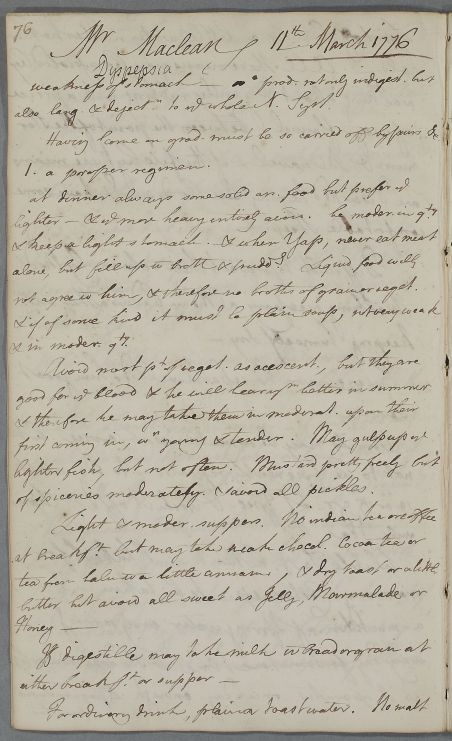 76
Mr Maclean 11th March 1776
Dyspepsia
weakness of stomach — prod. not only indigest. but
also lang. & deject.n to whole N. Syst.
Having come on grad. must be so carried off by pains &c
1. a proper regimen.
at dinner always some solid an. food but prefer
lighter — & more heavy entirely avoid. be moder. in q.ty
& keep a light stomach. & when never eat meat
alone, but fill up w broth & pudd.g Liquid food will
not agree w him, & therefore no broths of grain or veget.
& if of some kind it must be plain soup, not very weak
& in moder. q.ty
Avoid most p.t of veget. as acescent, but they are
good for blood & he will bear ym better in summer
& therefore he may take them in moderat. upon their
first coming in, wn young & tender. May
lighter fish, but not often. Mustard pretty freely but
of spiceries moderately. & avoid all pickles.
Light & moder. suppers. No indian tea or coffee
at breakf.st but may take weak chocol. Cocoa tea or
tea from w a little & dry toast or a little
butter but avoid all sweet as Jelly, Marmalade or
Honey —
If digestible may take milk w bread or grain at
either breakf.st or supper —
For ordinary drink, plain or toast water. No malt